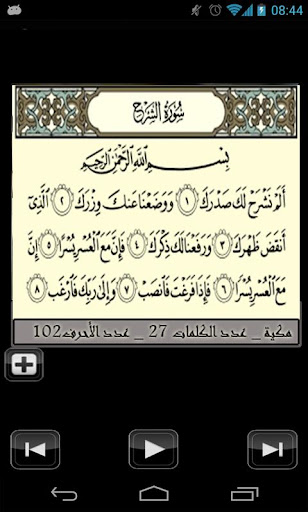 08:44
سُورَةُ الشَّرْحِ
بِسْمِ اللَّهِ الرَّحْمَٰنِ الرَّحِيمِ
أَلَمْ نَشْرَحْ لَكَ صَدْرَكَ ١ وَوَضَعْنَا عَنكَ وِزْرَكَ ٢ الَّذِي
أَنقَضَ ظَهْرَكَ ٣ وَرَفَعْنَا لَكَ ذِكْرَكَ ٤ فَإِنَّ مَعَ الْعُسْرِ يُسْرًا ٥ إِنَّ
مَعَ الْعُسْرِ يُسْرًا ٦ فَإِذَا فَرَغْتَ فَانصَبْ ٧ وَإِلَىٰ رَبِّكَ فَارْغَب ٨
مكية _ عدد الكلمات 27 _ عدد الأحرف102